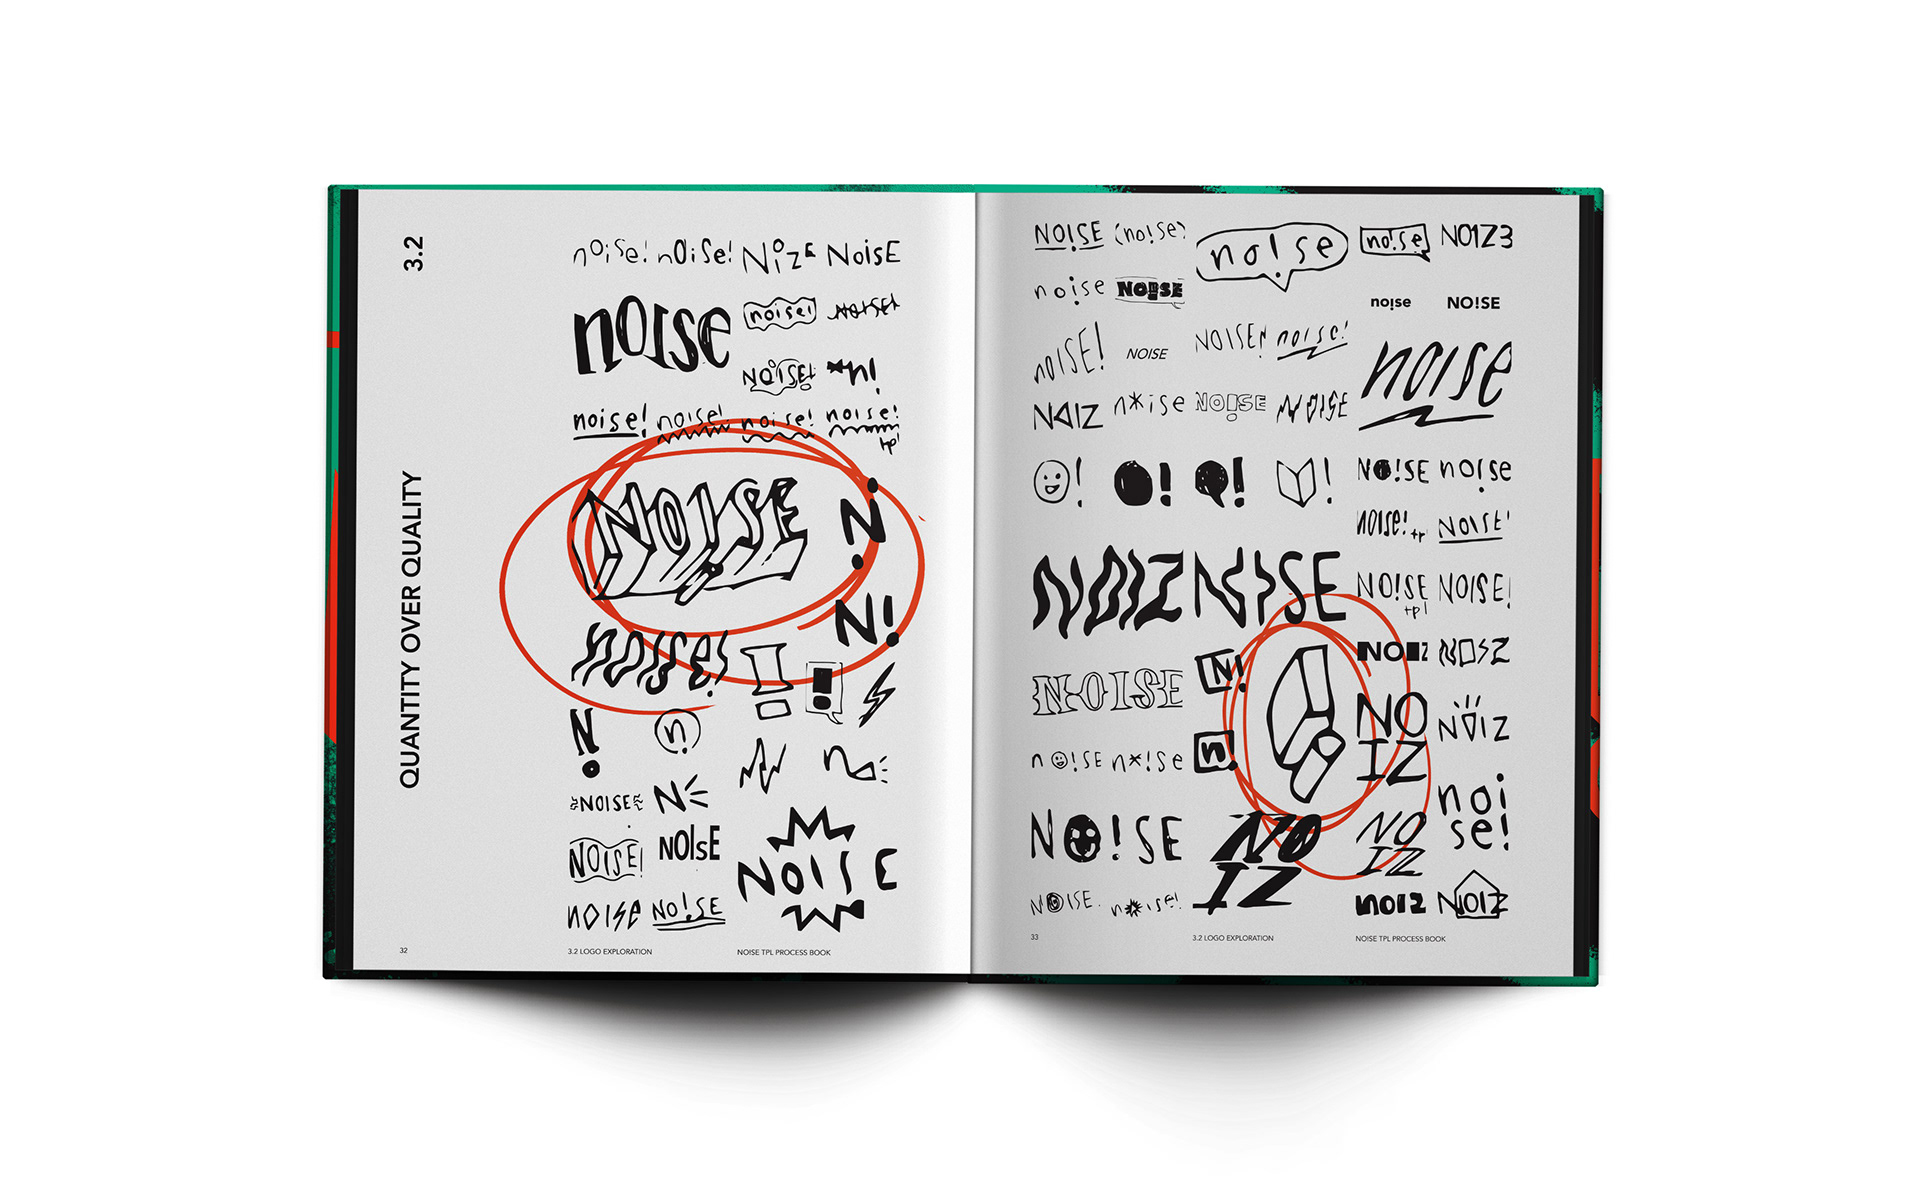 3.2
QUANTITY OVER QUALITY
noise! noise! NoizE NOiSE
noise noise! NOISE!
NOISE! *n!
noise! noise! noise! noise!
tpl
NOISE N!
N!
noise!
N! n!
NOISE N
NOISE! NOISE
NOISE
NOISE NO!SE
32 3.2 LOGO EXPLORATION NOISE TPL PROCESS BOOK
NO!SE (no!se) no!se no!se NO1Z3
noise NO!SE no!se NO!SE
NOISE! NOISE NOISE! noise! noise
NOIZ n*ise NO!SE NOISE
! ! ! ! NO!SE no!se
NOISE! NOISE!
NOIZ NOISE NO!SE tpl NOISE!
NOISE N! NOIZ NOIZ
NO
IZ
NOIZ
n!SE n*!se n!
noi
se!
NO!SE NO
IZ
NO
IZ
NOISE. noise! NOIZ NOIZ
33 3.2 LOGO EXPLORATION NOISE TPL PROCESS BOOK